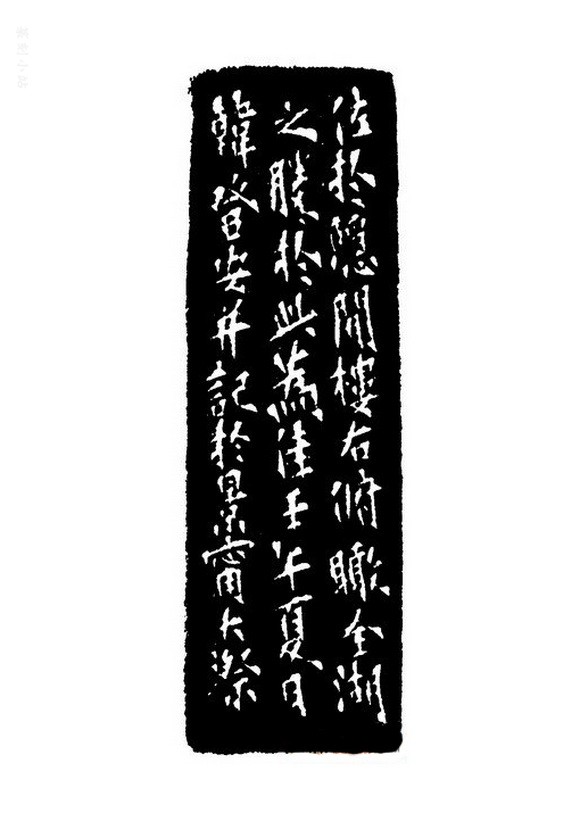 佐於隱閒樓右俯瞰全湖
之勝於此為佳壬午夏日
韓登安并記於景寧大漈